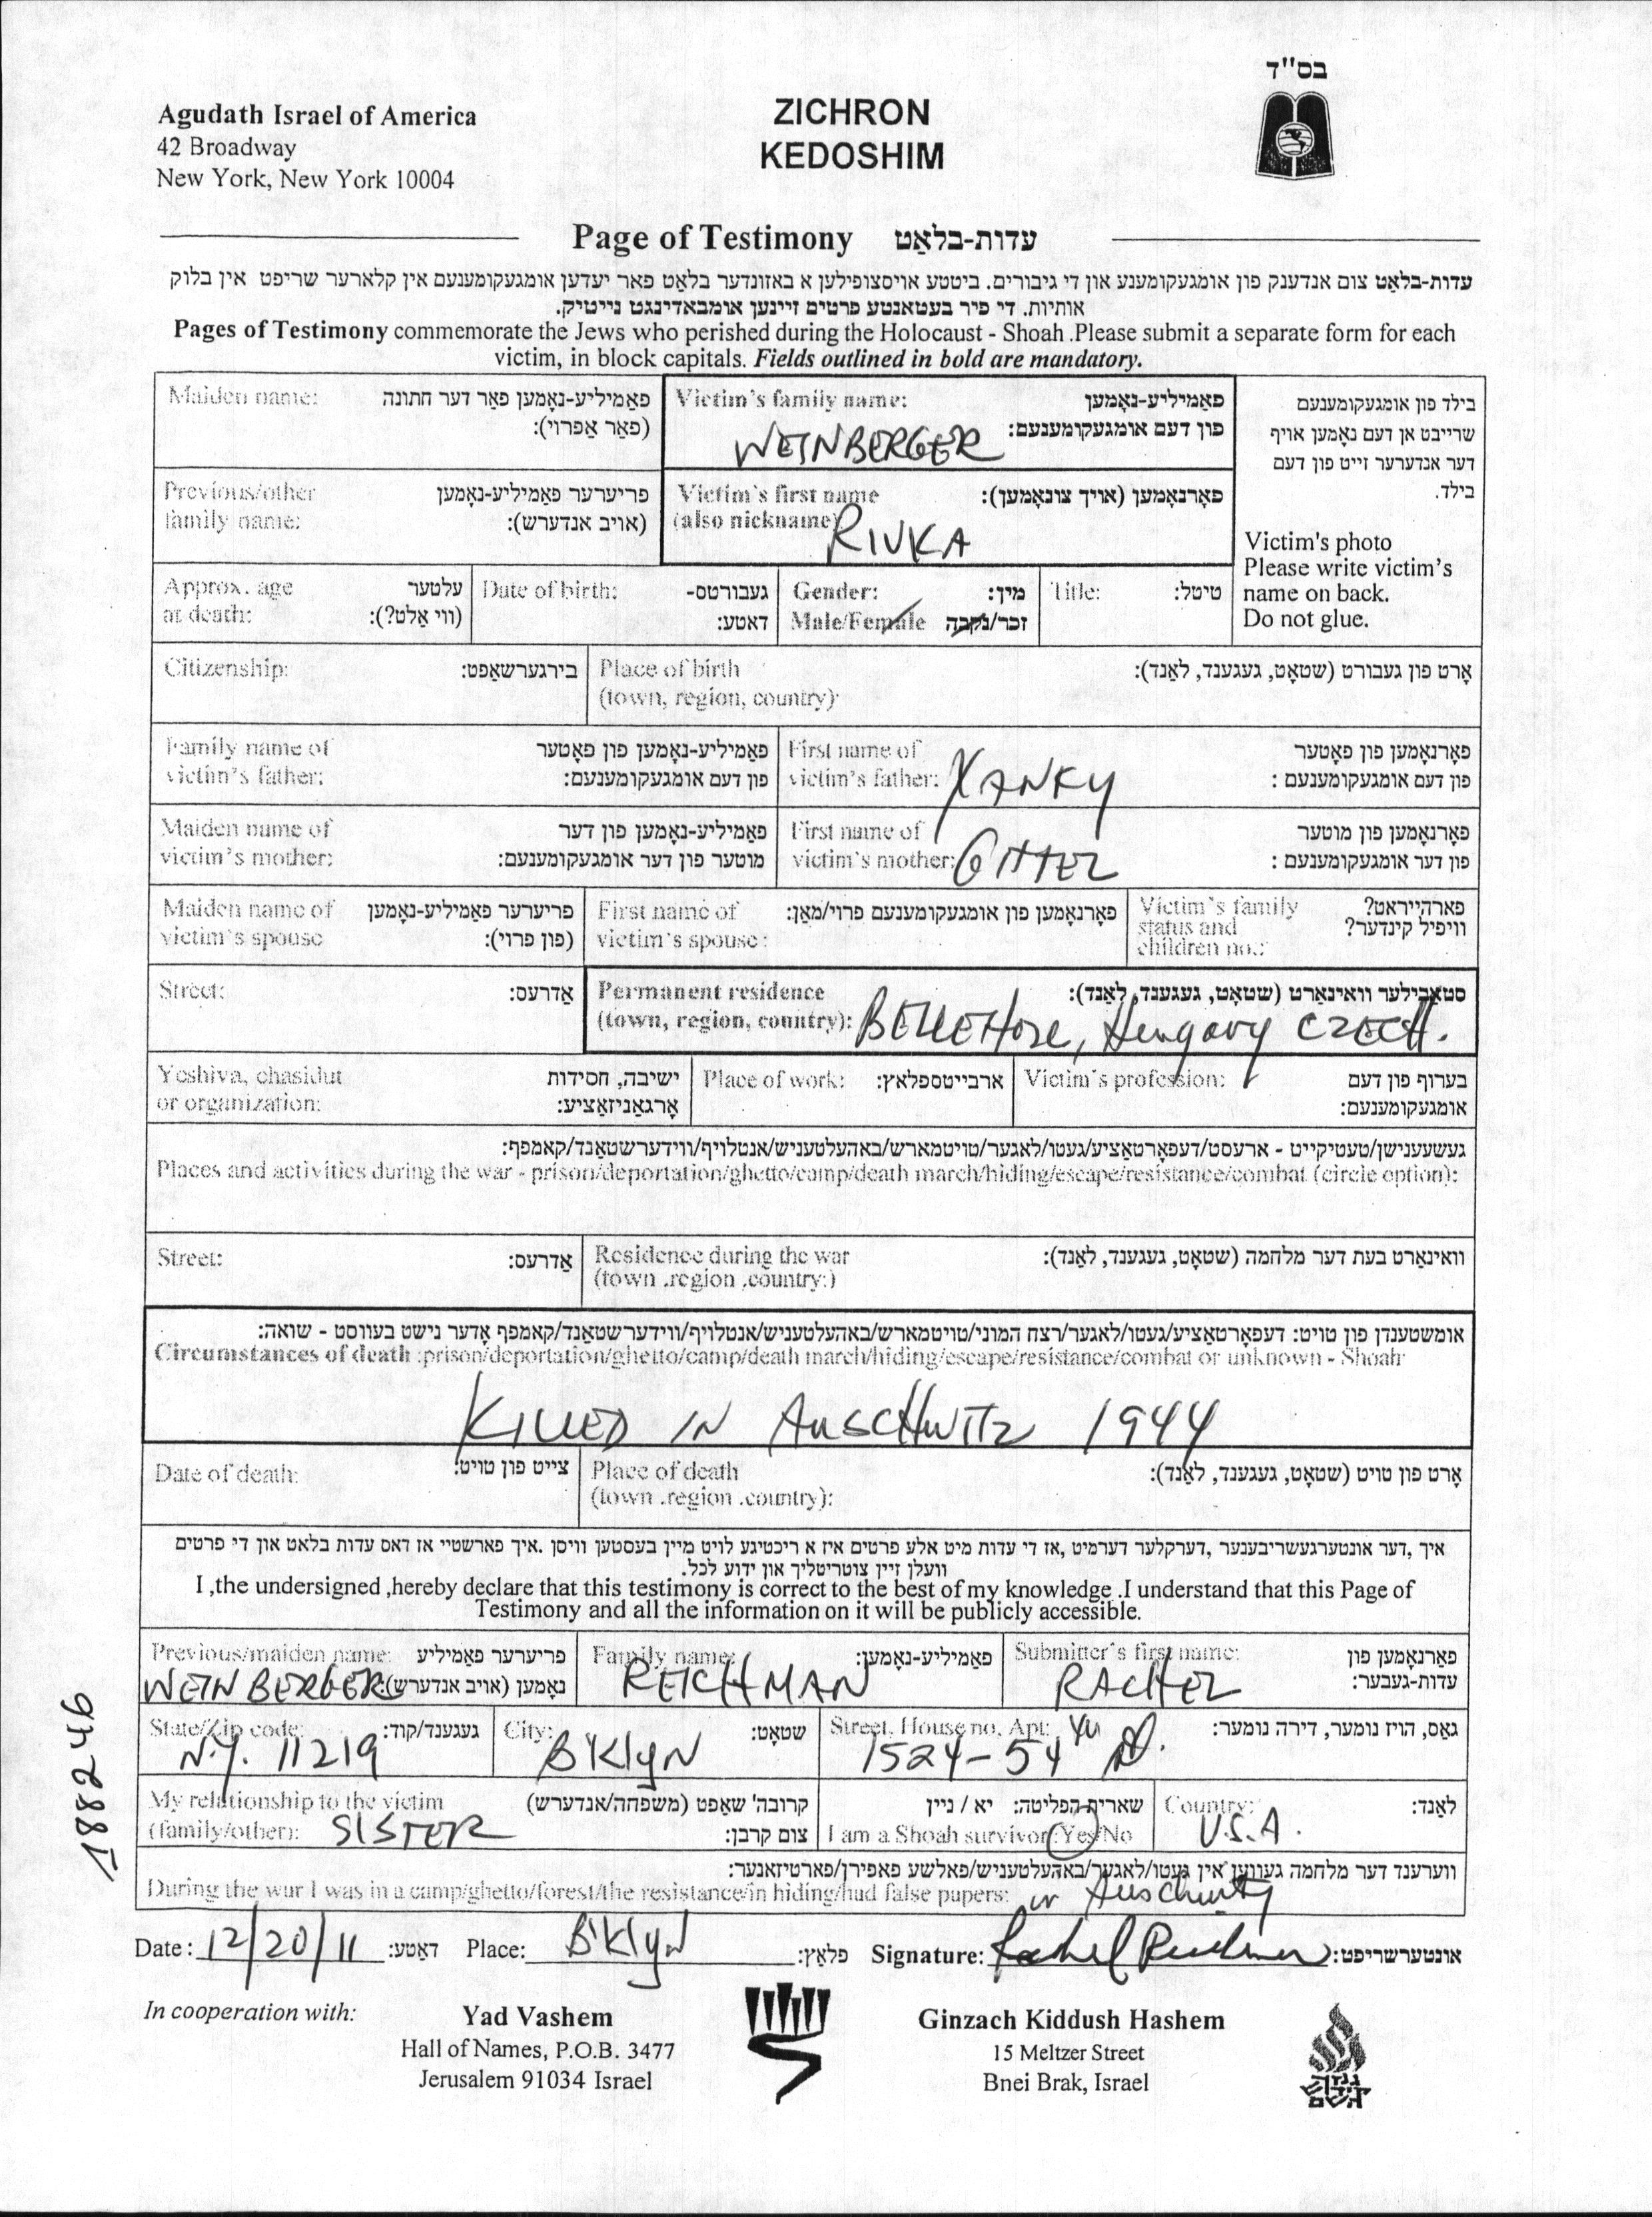 בס"ד
Agudath Israel of America
42 Broadway
New York, New York 10004
ZICHRON
KEDOSHIM
Page of Testimony עדות-בלאַט
עדות-בלאַט צום אנדענק פון אומגעקומענע און די גיבורים. ביטטע אויסצופילען א באזונדער בלאַט פאר יעדען אומגעקומענעם אין קלארער שריפט אין בלוק
אותיות. די פיר בעטאנטע פרטים זיינען אומבאדינגט נייטיק.
Pages of Testimony commemorate the Jews who perished during the Holocaust - Shoah .Please submit a separate form for each
victim, in block capitals. Fields outlined in bold are mandatory.
Maiden name: פאַמיליע-נאָמען פאַר דער חתונה
(פאַר אַפרוי):
Victim's family name: פאַמיליע-נאָמען
פון דעם אומגעקומענעם:
WEINBERGER
בילד פון אומגעקומענעם
שרייבט אן דעם נאָמען אויף
דער אנדערער זייט פון דעם
בילד.
Victim's photo
Please write victim's
name on back.
Do not glue.
Previous/other פריערער פאַמיליע-נאָמען
family name: (אויב אנדערש):
Victim's first name פאָרנאָמען (אויך צונאָמען):
(also nickname)
RIVKA
Approx. age עלטער
at death: (ווי אַלט?):
Date of birth: געבורטס-
דאטע:
Gender: מין:
Male/Female זכר/נקבה
Title: טיטל:
Citizenship: בירגערשאַפט:
Place of birth אָרט פון געבורט (שטאָט, געגענד, לאַנד):
(town, region, country):
Family name of פאַמיליע-נאָמען פון פאָטער
victim's father: פון דעם אומגעקומענעם:
First name of פאָרנאָמען פון פאָטער
victim's father: פון דעם אומגעקומענעם :
YANKY
Maiden name of פאַמיליע-נאָמען פון דער
victim's mother: מוטער פון דער אומגעקומענעם:
First name of פאָרנאָמען פון מוטער
victim's mother: פון דער אומגעקומענעם :
GITTEL
Maiden name of פריערער פאַמיליע-נאָמען
victim's spouse (פון פרוי):
First name of פאָרנאָמען פון אומגעקומענעם פרוי/מאַן:
victim's spouse:
Victim's family פארהייראט?
status and וויפיל קינדער?
children no.:
Street: אַדרעס:
Permanent residence סטאַבילער וואינאָרט (שטאָט, געגענד, לאַנד):
(town, region, country):
Hungary CZECH.
Yeshiva, chasidut ישיבה, חסידות
or organization: אָרגאַניזאַציע:
Place of work: ארבייטספלאץ:
Victim's profession: בערוף פון דעם
אומגעקומענעם:
געשעענישן/טעטיקייט - ארעסט/דעפאָרטאַציע/געטו/לאַגער/טויטמארש/באהעלטעניש/אנטלויף/ווידערשטאַנד/קאמפף:
Places and activities during the war - prison/deportation/ghetto/camp/death march/hiding/escape/resistance/combat (circle option):
Street: אַדרעס:
Residence during the war וואינאַרט בעת דער מלחמה (שטאָט, געגענד, לאַנד):
(town .region .country:)
אומשטענדן פון טויט: דעפאָרטאַציע/געטו/לאגער/רצח המוני/טויטמארש/באהעלטעניש/אנטלויף/ווידערשטאַנד/קאמפף אָדער נישט בעוווסט - שואה:
Circumstances of death :prison/deportation/ghetto/camp/death march/hiding/escape/resistance/combat or unknown - Shoah
KILLED IN AUSCHWITZ 1944
Date of death: צייט פון טויט:
Place of death אָרט פון טויט (שטאָט, געגענד, לאַנד):
(town .region .country):
איך ,דער אונטערגעשריבענער ,דערקלער דערמיט ,אז די עדות מיט אלע פרטים איז א ריכטיגע לויט מיין בעסטען וויסן .איך פארשטיי אז דאס עדות בלאט און די פרטים
וועלן זיין צוטריטליך און ידוע לכל.
I ,the undersigned ,hereby declare that this testimony is correct to the best of my knowledge .I understand that this Page of
Testimony and all the information on it will be publicly accessible.
Previous/maiden name: פריערער פאַמיליע
נאָמען (אויב אנדערש):
WEINBERGER
Family name: פאַמיליע-נאָמען:
REICHMAN
Submitter's first name: פאַרנאָמען פון
עדות-געבער:
RACHEL
State/Zip code: געגענד/קוד:
N.Y. 11219
City: שטאָט:
B'KlyN
Street, House no, Apt: גאַס, הויז נומער, דירה נומער:
1524-54
My relationship to the victim קרובה' שאפט (משפחה/אנדערש)
(family/other): צום קרבן:
SISTER
שארית הפליטה: יא / ניין
I am a Shoah survivor: Yes/No
Country: לאַנד:
U.S.A.
ווערענד דער מלחמה געווען אין געטו/לאגער/באהעלטעניש/פאלשע פאפירן/פארטיזאנער:
During the war I was in a camp/ghetto/forest/the resistance/in hiding/had false papers: in Auschwitz
Date: 12/20/11 דאַטע: Place: B'KlyN פלאַץ: Signature: Rachel Reichman אונטערשריפט:
In cooperation with:
Yad Vashem
Hall of Names, P.O.B. 3477
Jerusalem 91034 Israel
Ginzach Kiddush Hashem
15 Meltzer Street
Bnei Brak, Israel
גנזך
קידוש
השם
188246